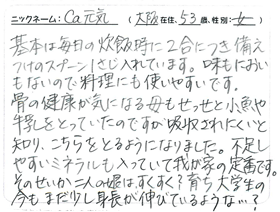 ニックネーム：Ca元気 （大阪在住、53歳、性別：女）
基本は毎日の炊飯時に2合につき備え
つけのスプーン1さじ入れています。味もにおい
もないので料理にも使いやすいです。
骨の健康が気になる母もせっせと小魚や
牛乳をとっていたのですが吸収されにくいと
知り、こちらをとるようになりました。不足し
やすいミネラルも入っていて我が家の定番です。
そのせいか二人の娘は、すくすく？育ち大学生の
今もまだ少し身長が伸びているような…？